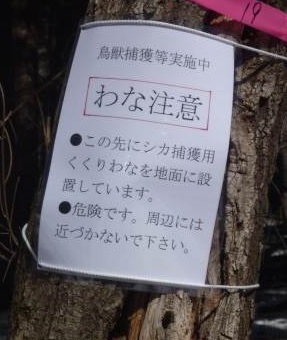 19
鳥獣捕獲等実施中
わな注意
●この先にシカ捕獲用
くくりわなを地面に設
置しています。
●危険です。周辺には
近づかないで下さい。